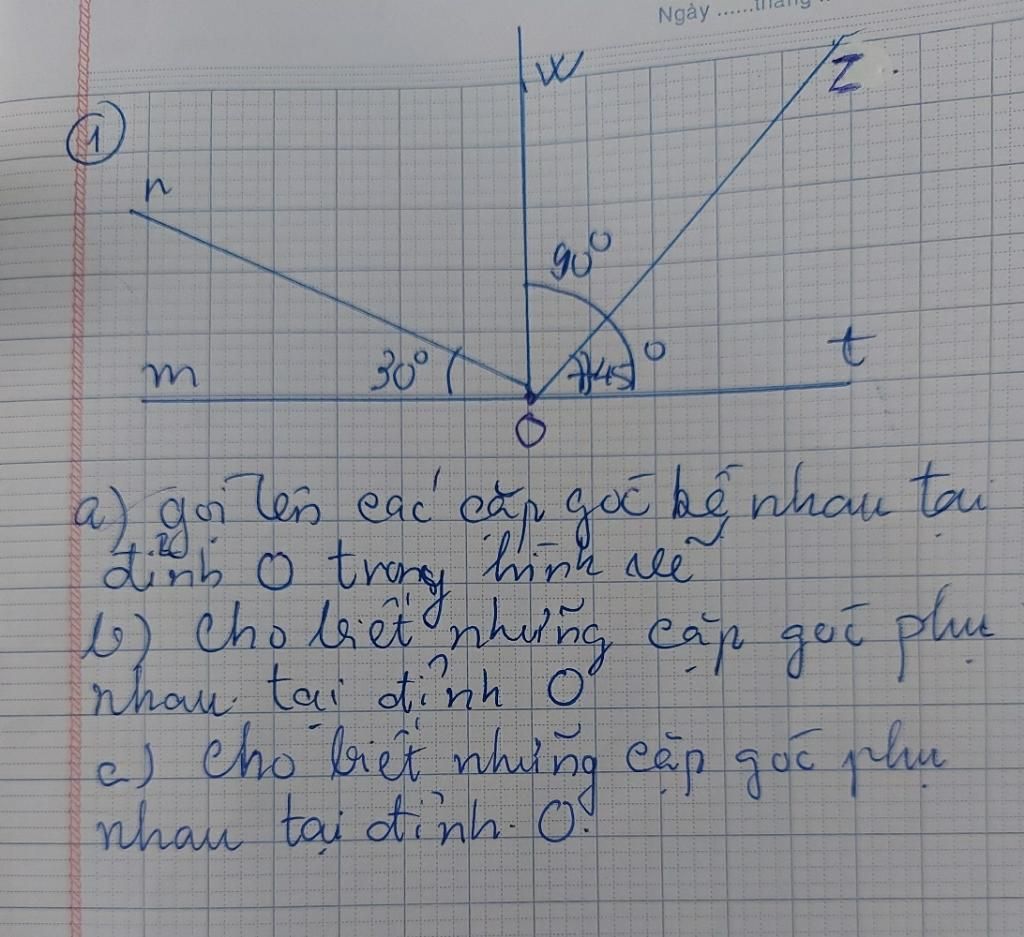 Ngày ......tháng
①
n
W
Z
90°
m
30°
45°
t
O
a) gọi tên các cặp góc kề nhau tại
đỉnh O trong hình vẽ
b) cho biết những cặp góc phụ
nhau tại đỉnh O
c) cho biết những cặp góc phụ
nhau tại đỉnh O.